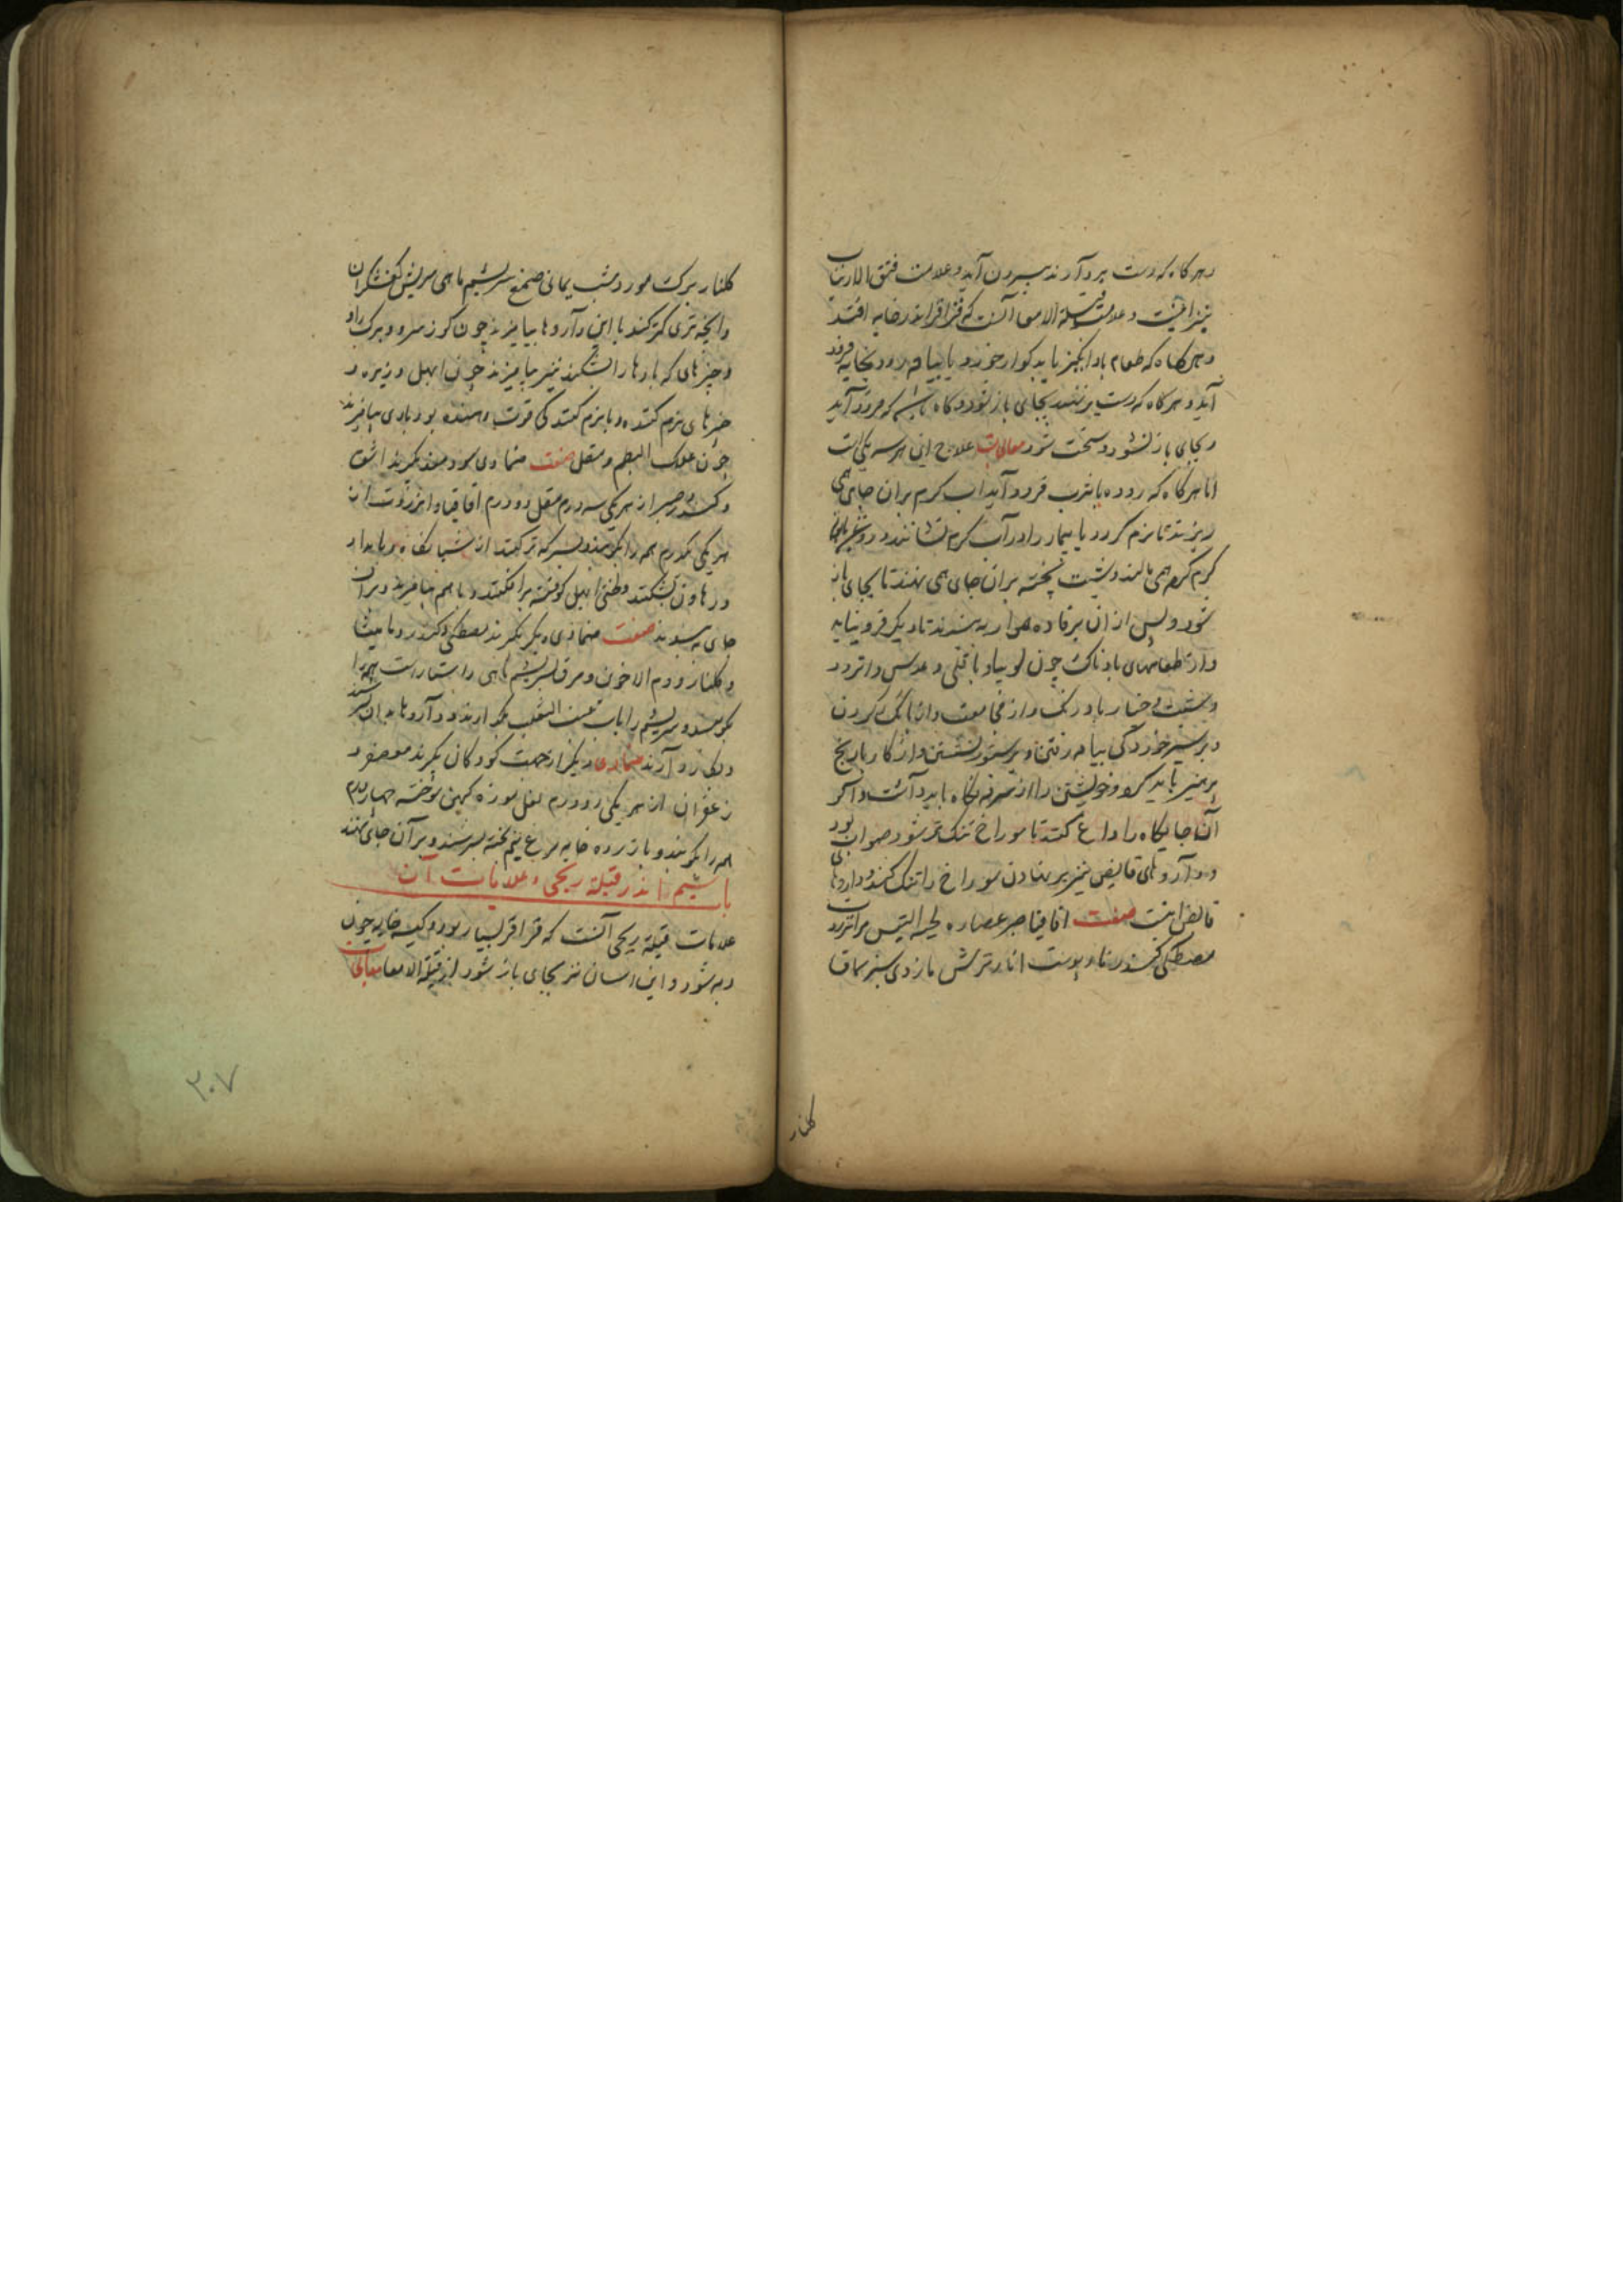 و هر گاه که دست بر و آرند بیرون آید و علامت فتق الارنبات
نیز اینست و علامت قیلة الامعا آنست که قراقر اندر خایه افتد
و هر گاه که طعام باد انگیز یا بد گوار خورد یا بپیاده رود بخایه فرود
آید و هر گاه که دست بر نهند بجای باز شود و گاه باشد که فرود آید
و بجای باز نشود و سخت شود معالجات علاج این هر سه یکی است
اما هر گاه که روده یا ثرب فرود آید آب گرم بران جای همی
ریزند تا نرم گردد یا بیمار را در آب گرم نشانند و روغنهای
گرم کرده همی مالند و شبت پخته بران جای همی نهند تا بجای باز
شود و پس از ان برفاده هموار به بندند تا دیگر فرو نیاید
و از طعامهای بادناک چون لوبیا و باقلی و عدس و اترد و
و خیار باد رنگ و از و از بانگ کردن
و بر سیر خوردگی بپیاده رفتن و بر ستور نشستن و از کار با رنج
پرهیز باید کرد و خویشتن را از سرفه نگاه باید داشت و اگر
آن جایگاه را داغ کنند تا سوراخ تنگ تر شود صواب بود
و داروهای قابض نیز بر نهادن سوراخ را تنگ کند و داروهای
قابض اینست صفت اقاقیا صبر عصاره لحیة التیس مر انزروت
مصطکی کندر پوست انار ترش مازوی سبز سماق
گلنار
گلنار برگ مورد شب یمانی صمغ سریشم ماهی سریش کفشگران
و آنچه تری کمتر کند با این داروها بیامیزند چون گوز سرو و برگ او
و چیزهای که بادها را بشکند نیز بیامیزند چون ابهل و زیره و
چیزهای نرم کننده و با نرم کنندگی قوت دهنده بود با وی بیامیزند
چون علک البطم و مقل صفت ضمادی سودمند بگیرند اشق
و کندر و صبر از هر یکی سه درم مقل دو درم اقاقیا و انزروت از
هر یکی درم همه را بکوبند و بسرکه تر کنند از شبانگاه و بامداد
در هاون بشکنند و ابهل کوفته بر افکنند و با هم بیامیزند و بران
جای به بندند صفت ضمادی دیگر بگیرند مصطکی و کندر و مامیثا
و گلنار و دم الاخوین و مر و سریشم ماهی راستاراست همه را
بکوبند و سریشم را بآب عنب الثعلب بگدازند و داروها بدان بسرشند
و بکار دارند ضمادی دیگر از جهت کودکان بگیرند معصفر و
زعفران از هر یکی دو درم نعل موزه کهن سوخته چهار درم
همه را بکوبند و با زرده خایه مرغ نیم پخته بسرشند و بر آن جای نهند
باب ششم اندر قیلة ریحی و علامات آن
علامات قیلة ریحی آنست که قراقر بسیار بود و کیسه خایه چون
دبه شود و این آسان تر بجای باز شود از قیلة الامعا معالجات
۲۰۷